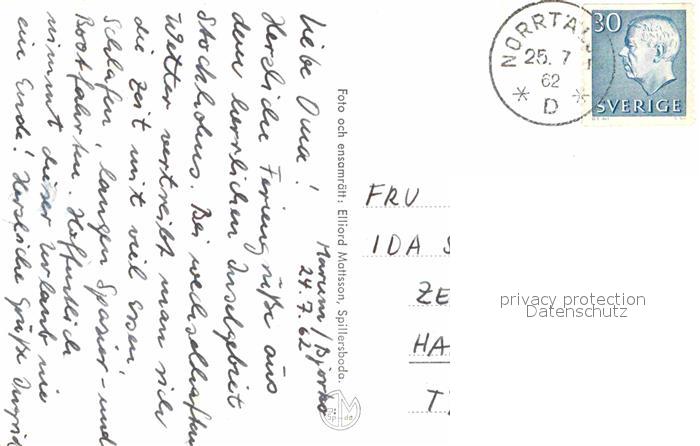 Marum/Björkö
24.7.62
Liebe Oma!
Herzliche Feriengrüße aus
dem herrlichen Inselgebiet
Stockholms. Bei wechselhaftem
Wetter vertreibt man sich
die Zeit mit viel Essen,
Schlafen, langen Spazier- und
Bootfahrten. Hoffentlich
nimmt dieser Urlaub nie
ein Ende! Herzliche Grüße Ingrid
Foto och ensamrätt: Elliord Mattsson, Spillersboda.
NORRTÄLJE
25.7
62
* D *
30
SVERIGE
FRU
IDA S
ZE
HA
T
privacy protection
Datenschutz